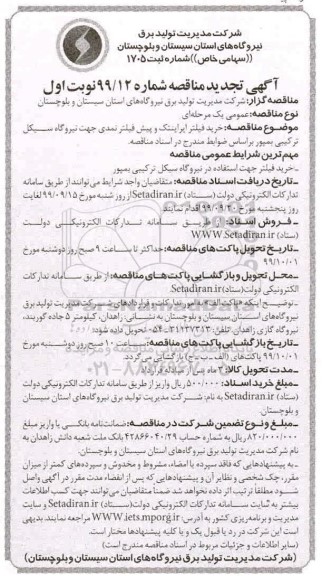 شرکت مدیریت تولید برق
نیروگاه‌های استان سیستان و بلوچستان
((سهامی خاص)) شماره ثبت ۱۷۰۵
آگهی تجدید مناقصه شماره ۹۹/۱۲ نوبت اول
مناقصه گزار: شرکت مدیریت تولید برق نیروگاه‌های استان سیستان و بلوچستان
نوع مناقصه: عمومی یک مرحله‌ای
موضوع مناقصه: خرید فیلتر ایرانتیک و پیش فیلتر نمدی جهت نیروگاه سیکل
ترکیبی بمپور براساس ضوابط مندرج در اسناد مناقصه.
مهم‌ترین شرایط عمومی مناقصه
ـ خرید فیلتر جهت استفاده در نیروگاه سیکل ترکیبی بمپور
ـ تاریخ دریافت اسناد مناقصه: متقاضیان واجد شرایط می‌توانند از طریق سامانه
تدارکات الکترونیکی دولت (ستاد) Setadiran.ir از روز شنبه مورخ ۹۹/۰۹/۱۵ لغایت
روز پنجشنبه مورخ ۹۹/۰۹/۲۰ اقدام نمایند
ـ فروش اسناد: از طریق سامانه تدارکات الکترونیکی دولت
(ستاد) WWW.Setadiran.ir
ـ تاریخ تحویل پاکت‌های مناقصه: حداکثر تا ساعت ۹ صبح روز دوشنبه مورخ
۹۹/۱۰/۰۱
ـ محل تحویل و بازگشایی پاکت‌های مناقصه: از طریق سامانه تدارکات
الکترونیکی دولت (ستاد) Setadiran.ir
ـ توضیح اینکه پاکت الف تدارکات و قراردادهای شرکت مدیریت تولید برق
نیروگاه‌های استان سیستان و بلوچستان به نشانی: زاهدان، کیلومتر ۵ جاده گوربند،
نیروگاه گازی زاهدان تلفن: تحویل داده شود.
ـ تاریخ بازگشایی پاکت‌های مناقصه: ساعت ۱۰ صبح روز دوشنبه مورخ
۹۹/۱۰/۰۱ پاکت‌های (الف ـ ب ـ ج) بازگشایی می‌گردد.
ـ مدت تحویل کالا: ۳ ماه پس از مبادله قرارداد
ـ مبلغ خرید اسناد: ۵۰۰/۰۰۰ ریال واریز از طریق سامانه تدارکات الکترونیکی دولت
(ستاد) Setadiran.ir به نام: شرکت مدیریت تولید برق نیروگاه‌های استان سیستان
و بلوچستان.
ـ مبلغ و نوع تضمین شرکت در مناقصه: ضمانت‌نامه بانکی یا واریز مبلغ
۸۲۰/۰۰۰/۰۰۰ ریال به شماره حساب ۴۲۸۶۶۰۴۰/۲۹ بانک ملت شعبه دانش زاهدان به
نام شرکت مدیریت تولید برق نیروگاه‌های استان سیستان و بلوچستان.
ـ به پیشنهادهایی که فاقد سپرده یا امضاء، مشروط و مخدوش و سپرده‌های کمتر از میزان
مقرر، چک شخصی و نظایر آن و پیشنهادهایی که پس از انقضاء مدت مقرر در آگهی واصل
شود مطلقاً ترتیب اثر داده نخواهد شد ضمناً متقاضیان می‌توانند جهت کسب اطلاعات
بیشتر به سایت سامانه تدارکات الکترونیکی دولت (ستاد) Setadiran.ir و سایت
مدیریت و برنامه‌ریزی کشور به آدرس: WWW.iets.mporg.ir مراجعه نمایند. بدیهی
است این شرکت در رد یا قبول یک و یا کلیه پیشنهادها مختار است.
(سایر اطلاعات و جزئیات مربوط در اسناد مناقصه مندرج است)
(شرکت مدیریت تولید برق نیروگاه‌های استان سیستان و بلوچستان)